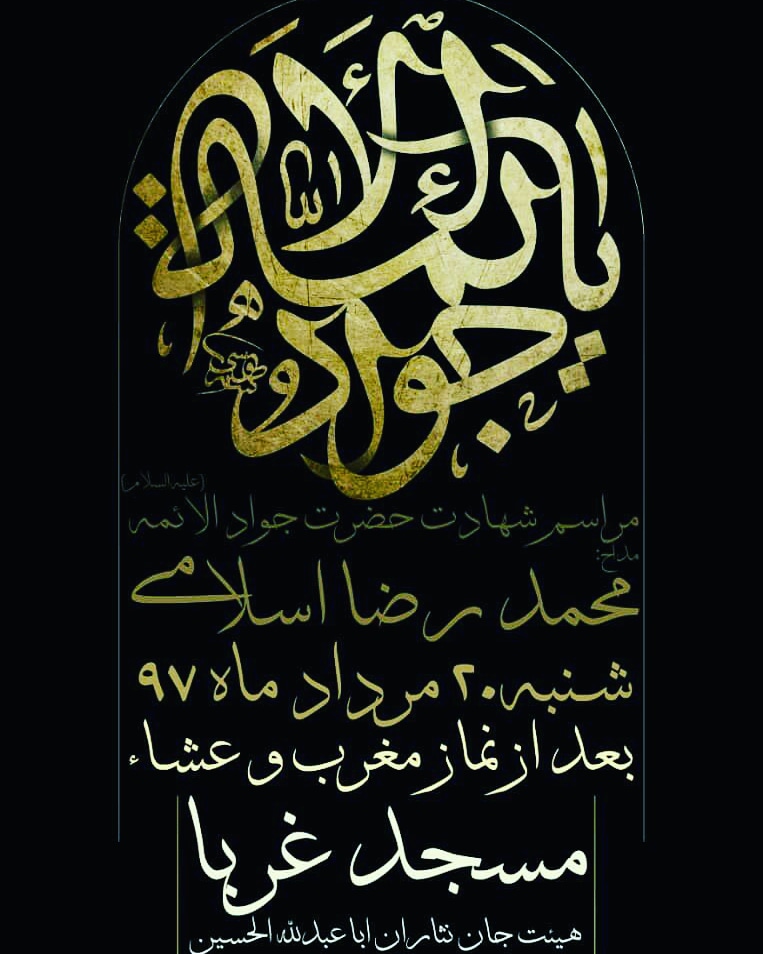 یا جواد الائمة
(علیه السلام)
مراسم شهادت حضرت جواد الائمه
مداح:
محمد رضا اسلامی
شنبه ۲۰ مرداد ماه ۹۷
بعد از نماز مغرب و عشاء
مسجد غربا
هیئت جان نثاران ابا عبدلله الحسین